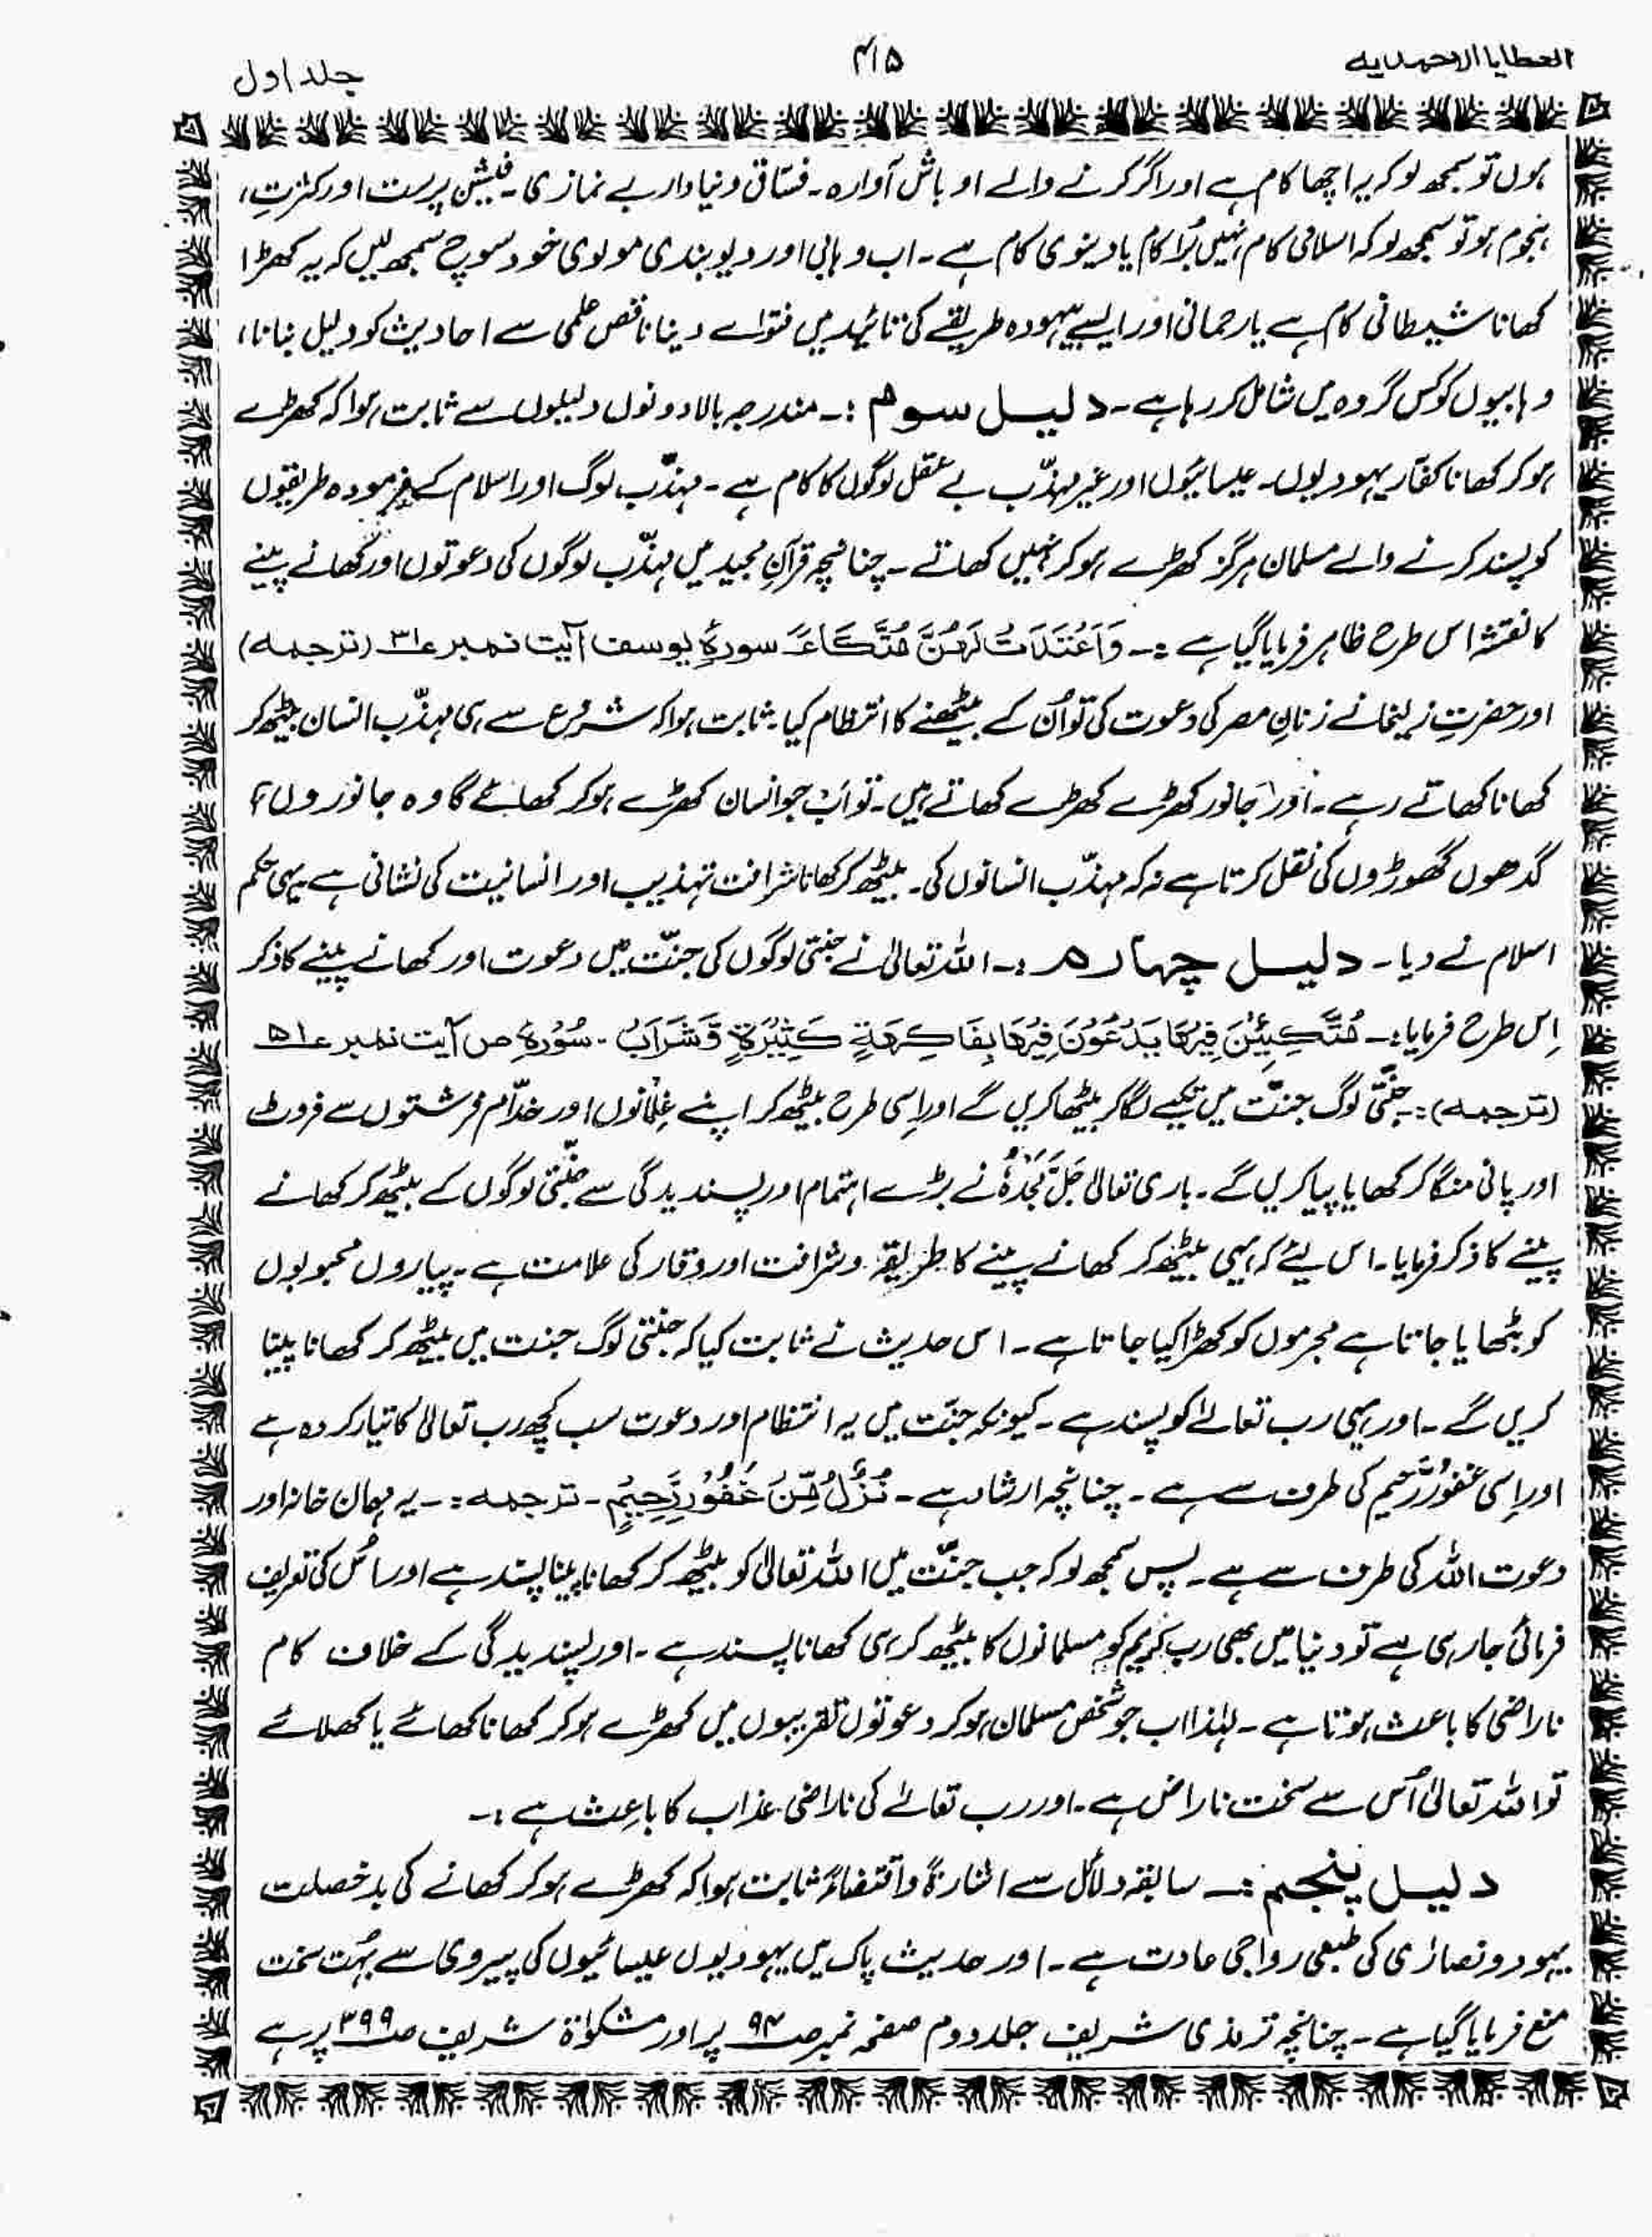 العطایا الاحمدیہ
۴۱۵
جلد اول
ہوں تو سمجھ لو کہ یہ اچھا کام ہے اور اگر کرنے والے اوباش آوارہ۔ فسّاق دنیا دار بے نمازی۔ فیشن پرست اور کثرتِ،
ہجوم ہو تو سمجھ لو کہ اسلامی کام نہیں بُرا کام یا دینوی کام ہے۔ اب وہابی اور دیوبندی مولوی خود سوچ سمجھ لیں کہ یہ کھڑا
کھانا شیطانی کام ہے یا رحمانی اور ایسے بیہودہ طریقے کی تائید میں فتوٰے دینا ناقص علمی سے احادیث کو دلیل بنانا،
وہابیوں کو کس گروہ میں شامل کر رہا ہے۔ دلیل سوم :۔ مندرجہ بالا دونوں دلیلوں سے ثابت ہوا کہ کھڑے
ہو کر کھانا کفّار یہودیوں۔ عیسائیوں اور غیر مہذّب بے عقل لوگوں کا کام ہے۔ مہذّب لوگ اور اسلام کے فرمودہ طریقوں
کو پسند کرنے والے مسلمان ہرگز کھڑے ہو کر نہیں کھاتے۔ چنانچہ قرآنِ مجید میں مہذّب لوگوں کی دعوتوں اور کھانے پینے
کا نقشہ اس طرح ظاہر فرمایا گیا ہے :۔ وَاَعْتَدَتْ لَهُنَّ مُتَّكَاءً سورۂ یوسف آیت نمبر ؏۳۱ (ترجمہ)
اور حضرتِ زلیخا نے زنانِ مصر کی دعوت کی تو اُن کے بیٹھنے کا انتظام کیا۔ ثابت ہوا کہ شروع سے ہی مہذّب انسان بیٹھ کر
کھانا کھاتے رہے۔ اور جانور کھڑے کھڑے کھاتے ہیں۔ تو اب جو انسان کھڑے ہو کر کھائے گا وہ جانوروں،
گدھوں گھوڑوں کی نقل کرتا ہے نہ کہ مہذّب انسانوں کی۔ بیٹھ کر کھانا شرافت تہذیب اور انسانیت کی نشانی ہے یہی حکم
اسلام نے دیا۔ دلیل چہارم :۔ اللہ تعالیٰ نے جنتی لوگوں کی جنّت میں دعوت اور کھانے پینے کا ذکر
اِس طرح فرمایا:۔ مُتَّكِئِيْنَ فِيْهَا يَدْعُوْنَ فِيْهَا بِفَاكِهَةٍ كَثِيْرَةٍ وَّشَرَابٍ۔ سُوْرۂ ص آیت نمبر ؏۵۱
(ترجمہ):۔ جنّتی لوگ جنّت میں تکیے لگا کر بیٹھا کریں گے اور اِسی طرح بیٹھ کر اپنے غِلمانوں اور خدّام فرشتوں سے فروٹ
اور پانی منگا کر کھایا پیا کریں گے۔ باری تعالیٰ جَلَّ مَجْدُہٗ نے بڑے اہتمام اور پسندیدگی سے جنّتی لوگوں کے بیٹھ کر کھانے
پینے کا ذکر فرمایا۔ اس لیئے کہ یہی بیٹھ کر کھانے پینے کا طریقہ و شرافت اور وقار کی علامت ہے۔ پیاروں محبوبوں
کو بٹھایا جاتا ہے مجرموں کو کھڑا کیا جاتا ہے۔ اس حدیث نے ثابت کیا کہ جنتی لوگ جنت میں بیٹھ کر کھانا پینا
کریں گے۔ اور یہی رب تعالےٰ کو پسند ہے۔ کیونکہ جنّت میں یہ انتظام اور دعوت سب کچھ رب تعالیٰ کا تیار کردہ ہے
اور اِسی غفورٌ رَّحیم کی طرف سے ہے۔ چنانچہ ارشاد ہے۔ نُزُلٌ مِّنْ غَفُوْرٍ رَّحِيْمٍ۔ ترجمہ:۔ یہ مہمان خانہ اور
دعوت اللہ کی طرف سے ہے۔ پس سمجھ لو کہ جب جنّت میں اللہ تعالیٰ کو بیٹھ کر کھانا پینا پسند ہے اور سائل کی تعریف
فرمائی جا رہی ہے تو دنیا میں بھی رب کریم کو مسلمانوں کا بیٹھ کر ہی کھانا پسند ہے۔ اور پسندیدگی کے خلاف کام
ناراضی کا باعث ہوتا ہے۔ لہٰذا اب جو شخص مسلمان ہو کر دعوتوں تقریبوں میں کھڑے ہو کر کھانا کھائے یا کھلائے
تو اللہ تعالیٰ اُس سے سخت ناراض ہے۔ اور رب تعالےٰ کی ناراضی عذاب کا باعِث ہے :۔
دلیل پنجم :۔ سابقہ دلائل سے اشارۃً و اقتضاءً ثابت ہوا کہ کھڑے ہو کر کھانے کی بد خصلت
یہود و نصارٰی کی طبعی رواجی عادت ہے۔ اور حدیث پاک میں یہودیوں عیسائیوں کی پیروی سے بہُت سخت
منع فرمایا گیا ہے۔ چنانچہ ترمذی شریف جلد دوم صفحہ نمبر صـ۹۴ پر اور مشکوٰۃ شریف صـ۳۹۹ پر ہے